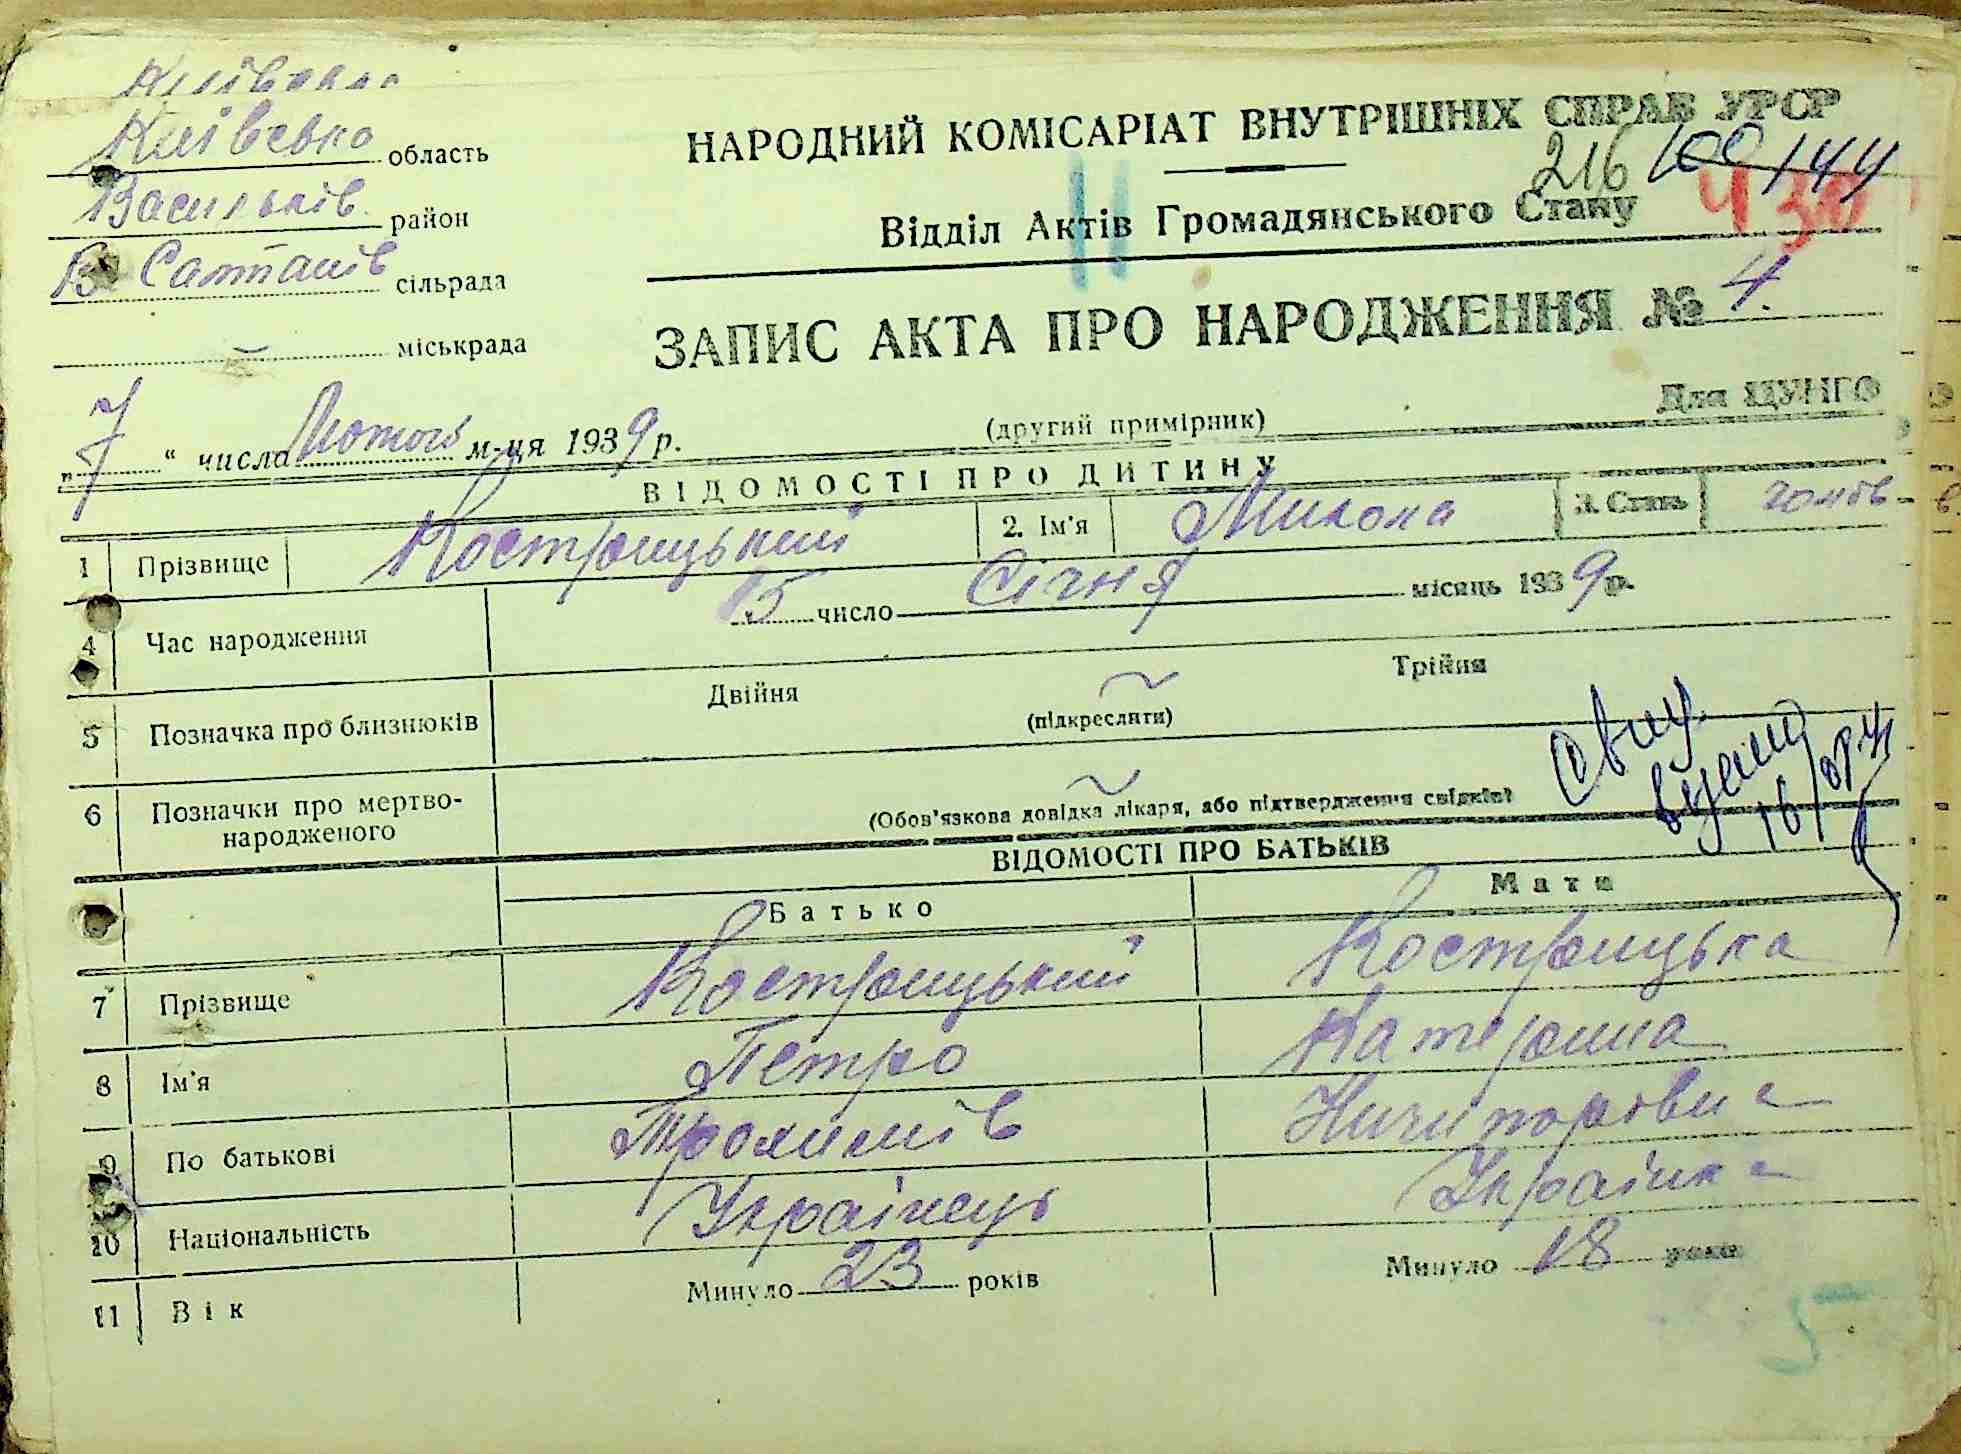 Київсько область
Васильків район
В Салтанів сільрада
міськрада
НАРОДНИЙ КОМІСАРІАТ ВНУТРІШНІХ СПРАВ УРСР
216 100 144
430
Відділ Актів Громадянського Стану
11
ЗАПИС АКТА ПРО НАРОДЖЕННЯ № 4.
„7“ числа Лютого м-ця 1939 р.
(другий примірник)
Для ЦУНГО
ВІДОМОСТІ ПРО ДИТИНУ
1 Прізвище Кострицький 2. Ім'я Микола 3. Стать
4 Час народження 15 число Січня місяць 1939 р.
5 Позначка про близнюків Двійня (підкреслити) Трійня
6 Позначки про мертво-
народженого (Обов'язкова довідка лікаря, або підтвердження свідків)
ВІДОМОСТІ ПРО БАТЬКІВ
Батько Мати
7 Прізвище Кострицький Кострицька
8 Ім'я Петро Катерина
9 По батькові Трохимів Ничипоровна
10 Національність Українець Українка
11 Вік Минуло 23 років Минуло 18 років
5